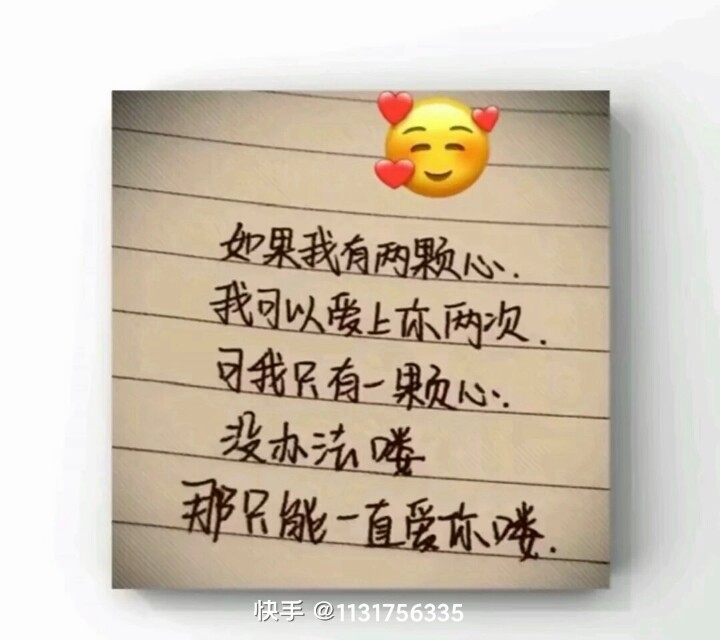 如果我有两颗心.
我可以爱上你两次.
可我只有一颗心.
没办法喽
那只能一直爱你喽.
快手 @1131756335